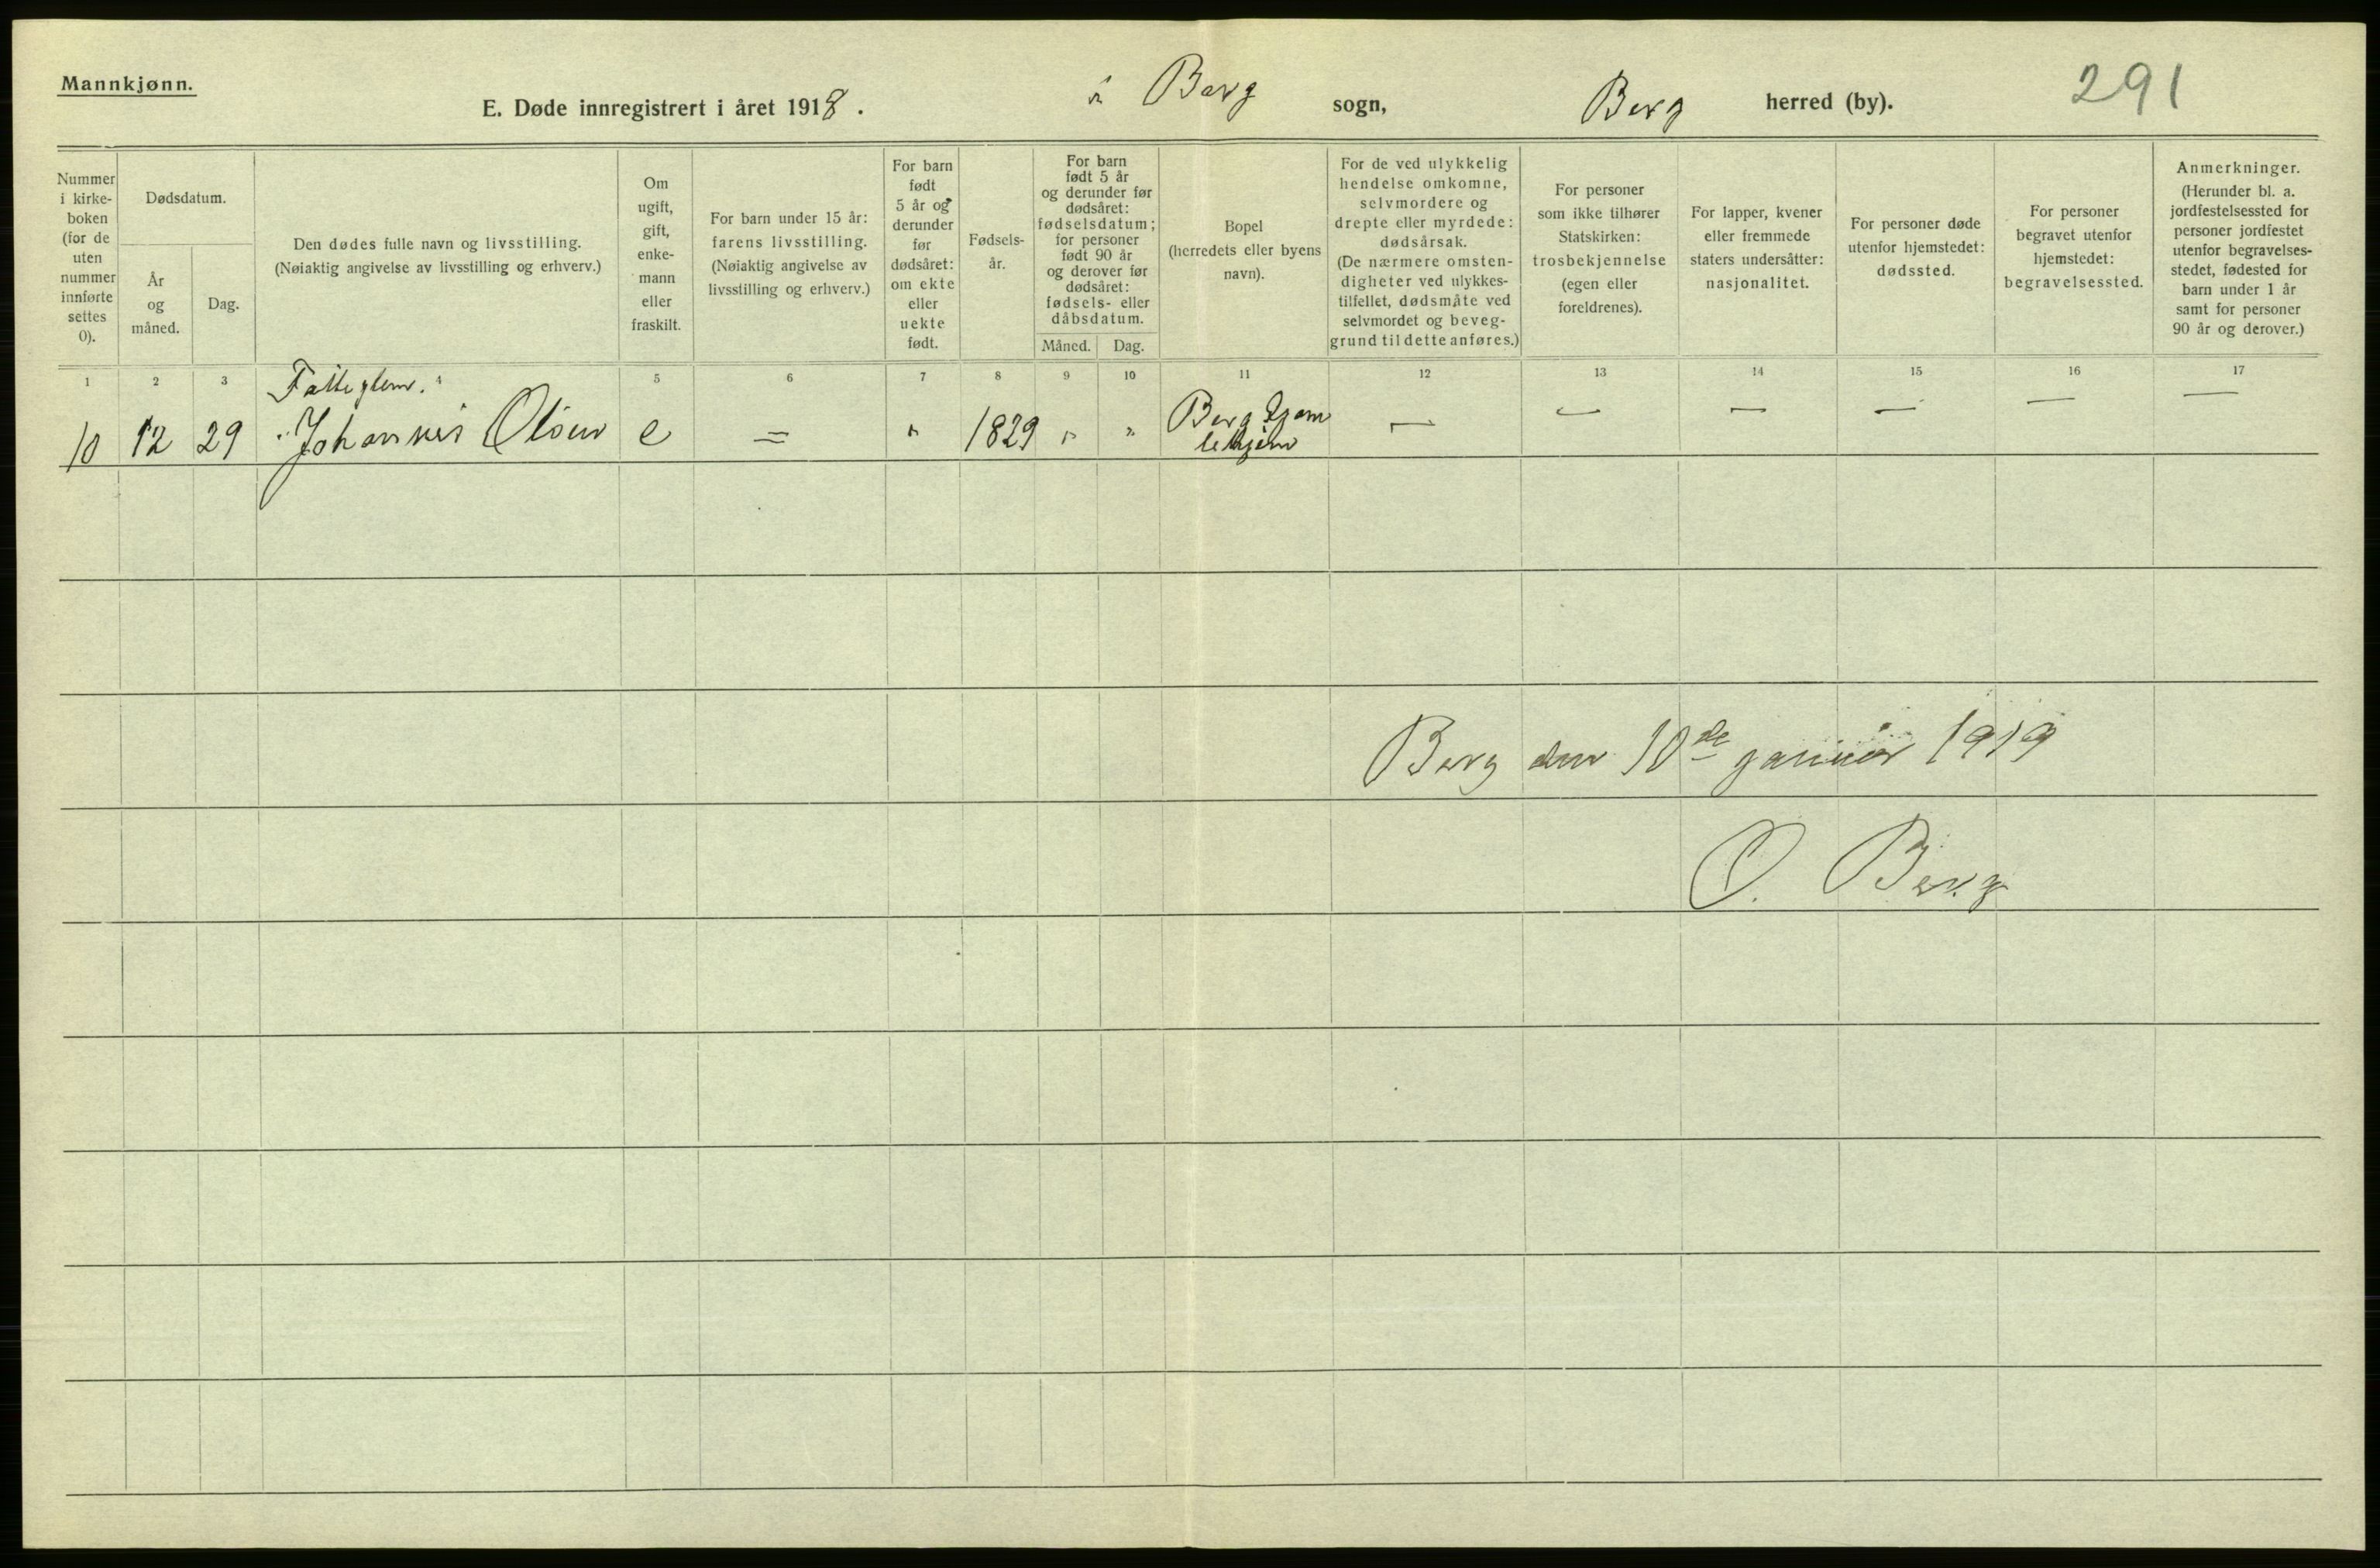 Mannkjønn.
E. Døde innregistrert i året 1918. i Berg sogn, Berg herred (by). 291
Nummer i kirke-boken (for de uten nummer innførte settes 0).
Dødsdatum.
År og måned.
Dag.
Den dødes fulle navn og livsstilling.
(Nøiaktig angivelse av livsstilling og erhverv.)
Om ugift, gift, enke-mann eller fraskilt.
For barn under 15 år: farens livsstilling.
(Nøiaktig angivelse av livsstilling og erhverv.)
For barn født 5 år og derunder før dødsåret: om ekte eller uekte født.
Fødsels-år.
For barn født 5 år og derunder før dødsåret: fødselsdatum; for personer født 90 år og derover før dødsåret: fødsels- eller dåbsdatum.
Måned. Dag.
Bopel
(herredets eller byens navn).
For de ved ulykkelig hendelse omkomne, selvmordere og drepte eller myrdede: dødsårsak.
(De nærmere omsten-digheter ved ulykkes-tilfellet, dødsmåte ved selvmordet og beveg-grund til dette anføres.)
For personer som ikke tilhører Statskirken: trosbekjennelse (egen eller foreldrenes).
For lapper, kvener eller fremmede staters undersåtter: nasjonalitet.
For personer døde utenfor hjemstedet: dødssted.
For personer begravet utenfor hjemstedet: begravelsessted.
Anmerkninger.
(Herunder bl. a. jordfestelsessted for personer jordfestet utenfor begravelses-stedet, fødested for barn under 1 år samt for personer 90 år og derover.)
1 2 3 4 5 6 7 8 9 10 11 12 13 14 15 16 17
10 12 29 Johannes Olsen e = " 1829 " " Berg — — — — — —
Berg den 10de januar 1919
O. Berg